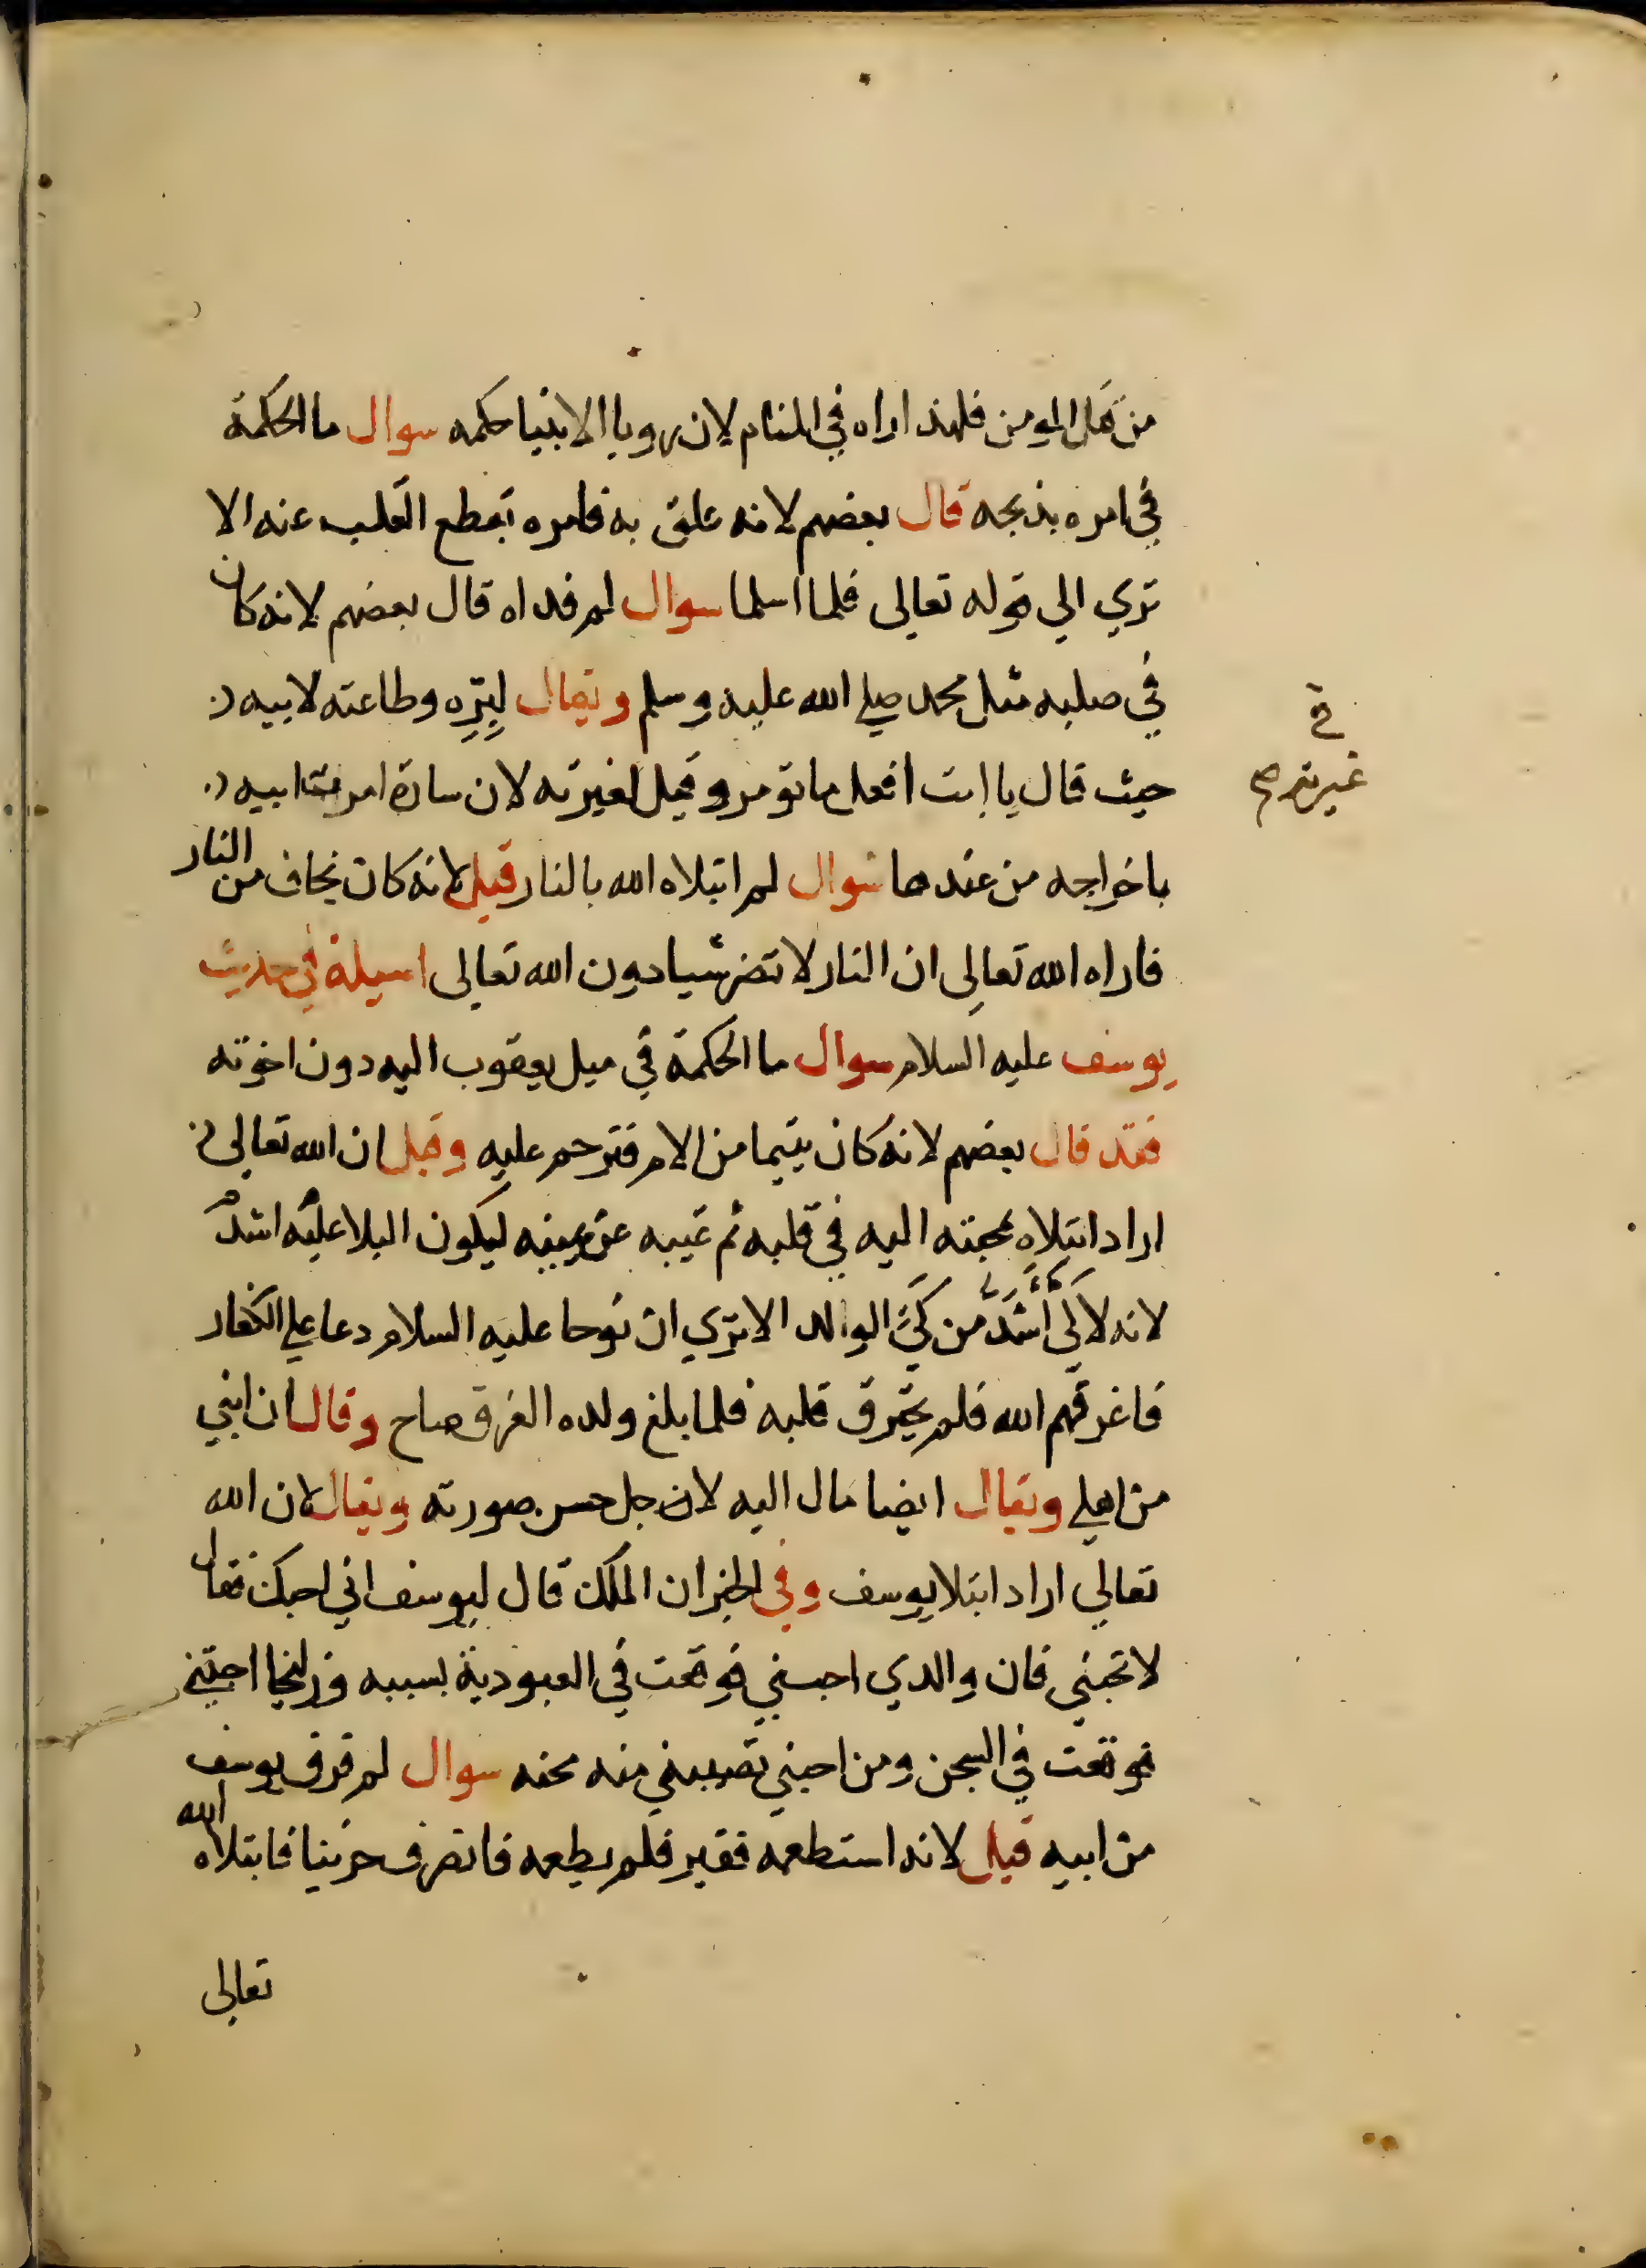 من قتل المومن فلهذا اراه في المنام لان رويا الانبيا حكمه سوال ما الحكمة
في امره بذبحه قال بعضهم لانه علق به فامره بقطع القلب عنه الا
تري الي قوله تعالى فلما اسلما سوال لم فداه قال بعضهم لانه كان
في صلبه مثل محمد صلي الله عليه وسلم ويقال لبره وطاعته لابيه
حيث قال يا ابت افعل ما تومر وقيل لغيرته لان سارة امرت ابيه
باخراجه من عندها سوال لم ابتلاه الله بالنار قيل لانه كان يخاف من النار
فاراه الله تعالى ان النار لا تضر شيا دون الله تعالى اسيلة في حديث
يوسف عليه السلام سوال ما الحكمة في ميل يعقوب اليه دون اخوته
فقد قال بعضهم لانه كان يتيما من الام فترحم عليه وقيل ان الله تعالى
اراد ابتلاه بمحبته اليه في قلبه ثم غيبه عن عينيه ليكون البلا عليه اشد
لانه لا كي أشد من كي الوالد الا تري ان نوحا عليه السلام دعا علي الكفار
فاغرقهم الله فلم يحترق قلبه فلما بلغ ولده الغرق صاح وقال ان ابني
من اهلي ويقال ايضا مال اليه لاجل حسن صورته ويقال لان الله
تعالي اراد ابتلا يوسف وفي الخبر ان الملك قال ليوسف اني احبك فقال
لا تحبني فان والدي احبني فوقعت في العبودية بسببه وزليخا احبتني
فوقعت في السجن ومن احبني تصيبني منه محنه سوال لم فرق يوسف
من ابيه قيل لانه استطعمه فقير فلم يطعمه فانصرف حزينا فابتلاه الله
تعالى